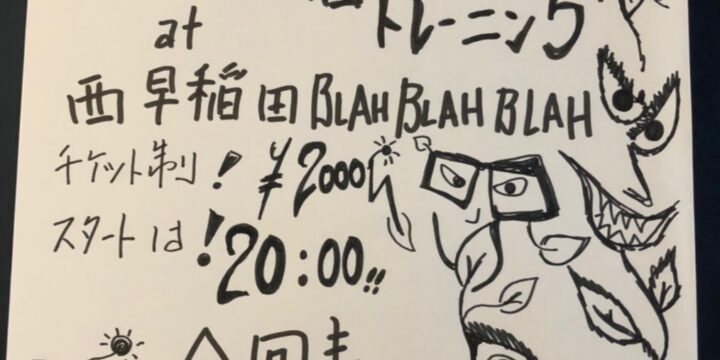 トレーニング
at
西早稲田BLAH BLAH BLAH
チケット制!¥2000
スタートは!20:00!!
今回も